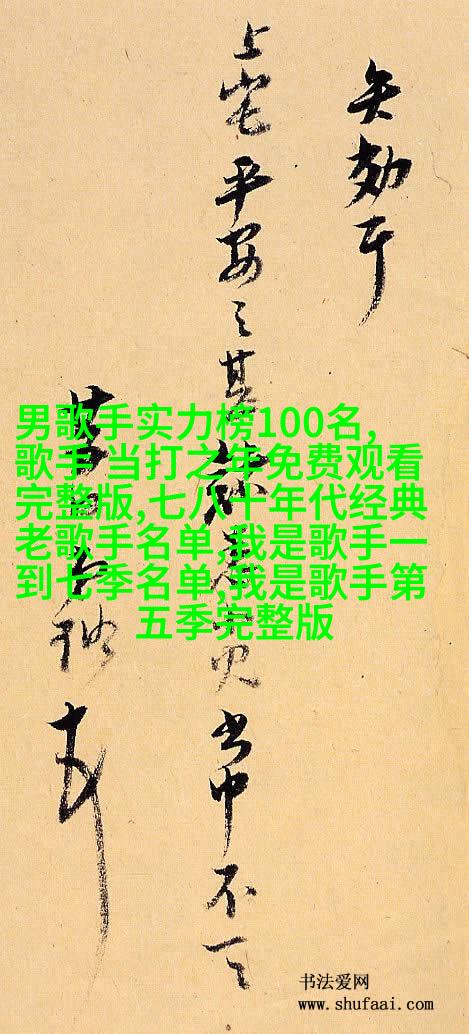 上宅平安之甚 中不一一
男歌手实力榜100名,
歌手·当打之年免费观看
完整版,七八十年代经典
老歌手名单,我是歌手一
到七季名单,我是歌手第
五季完整版
书法爱网
www.shufaai.com